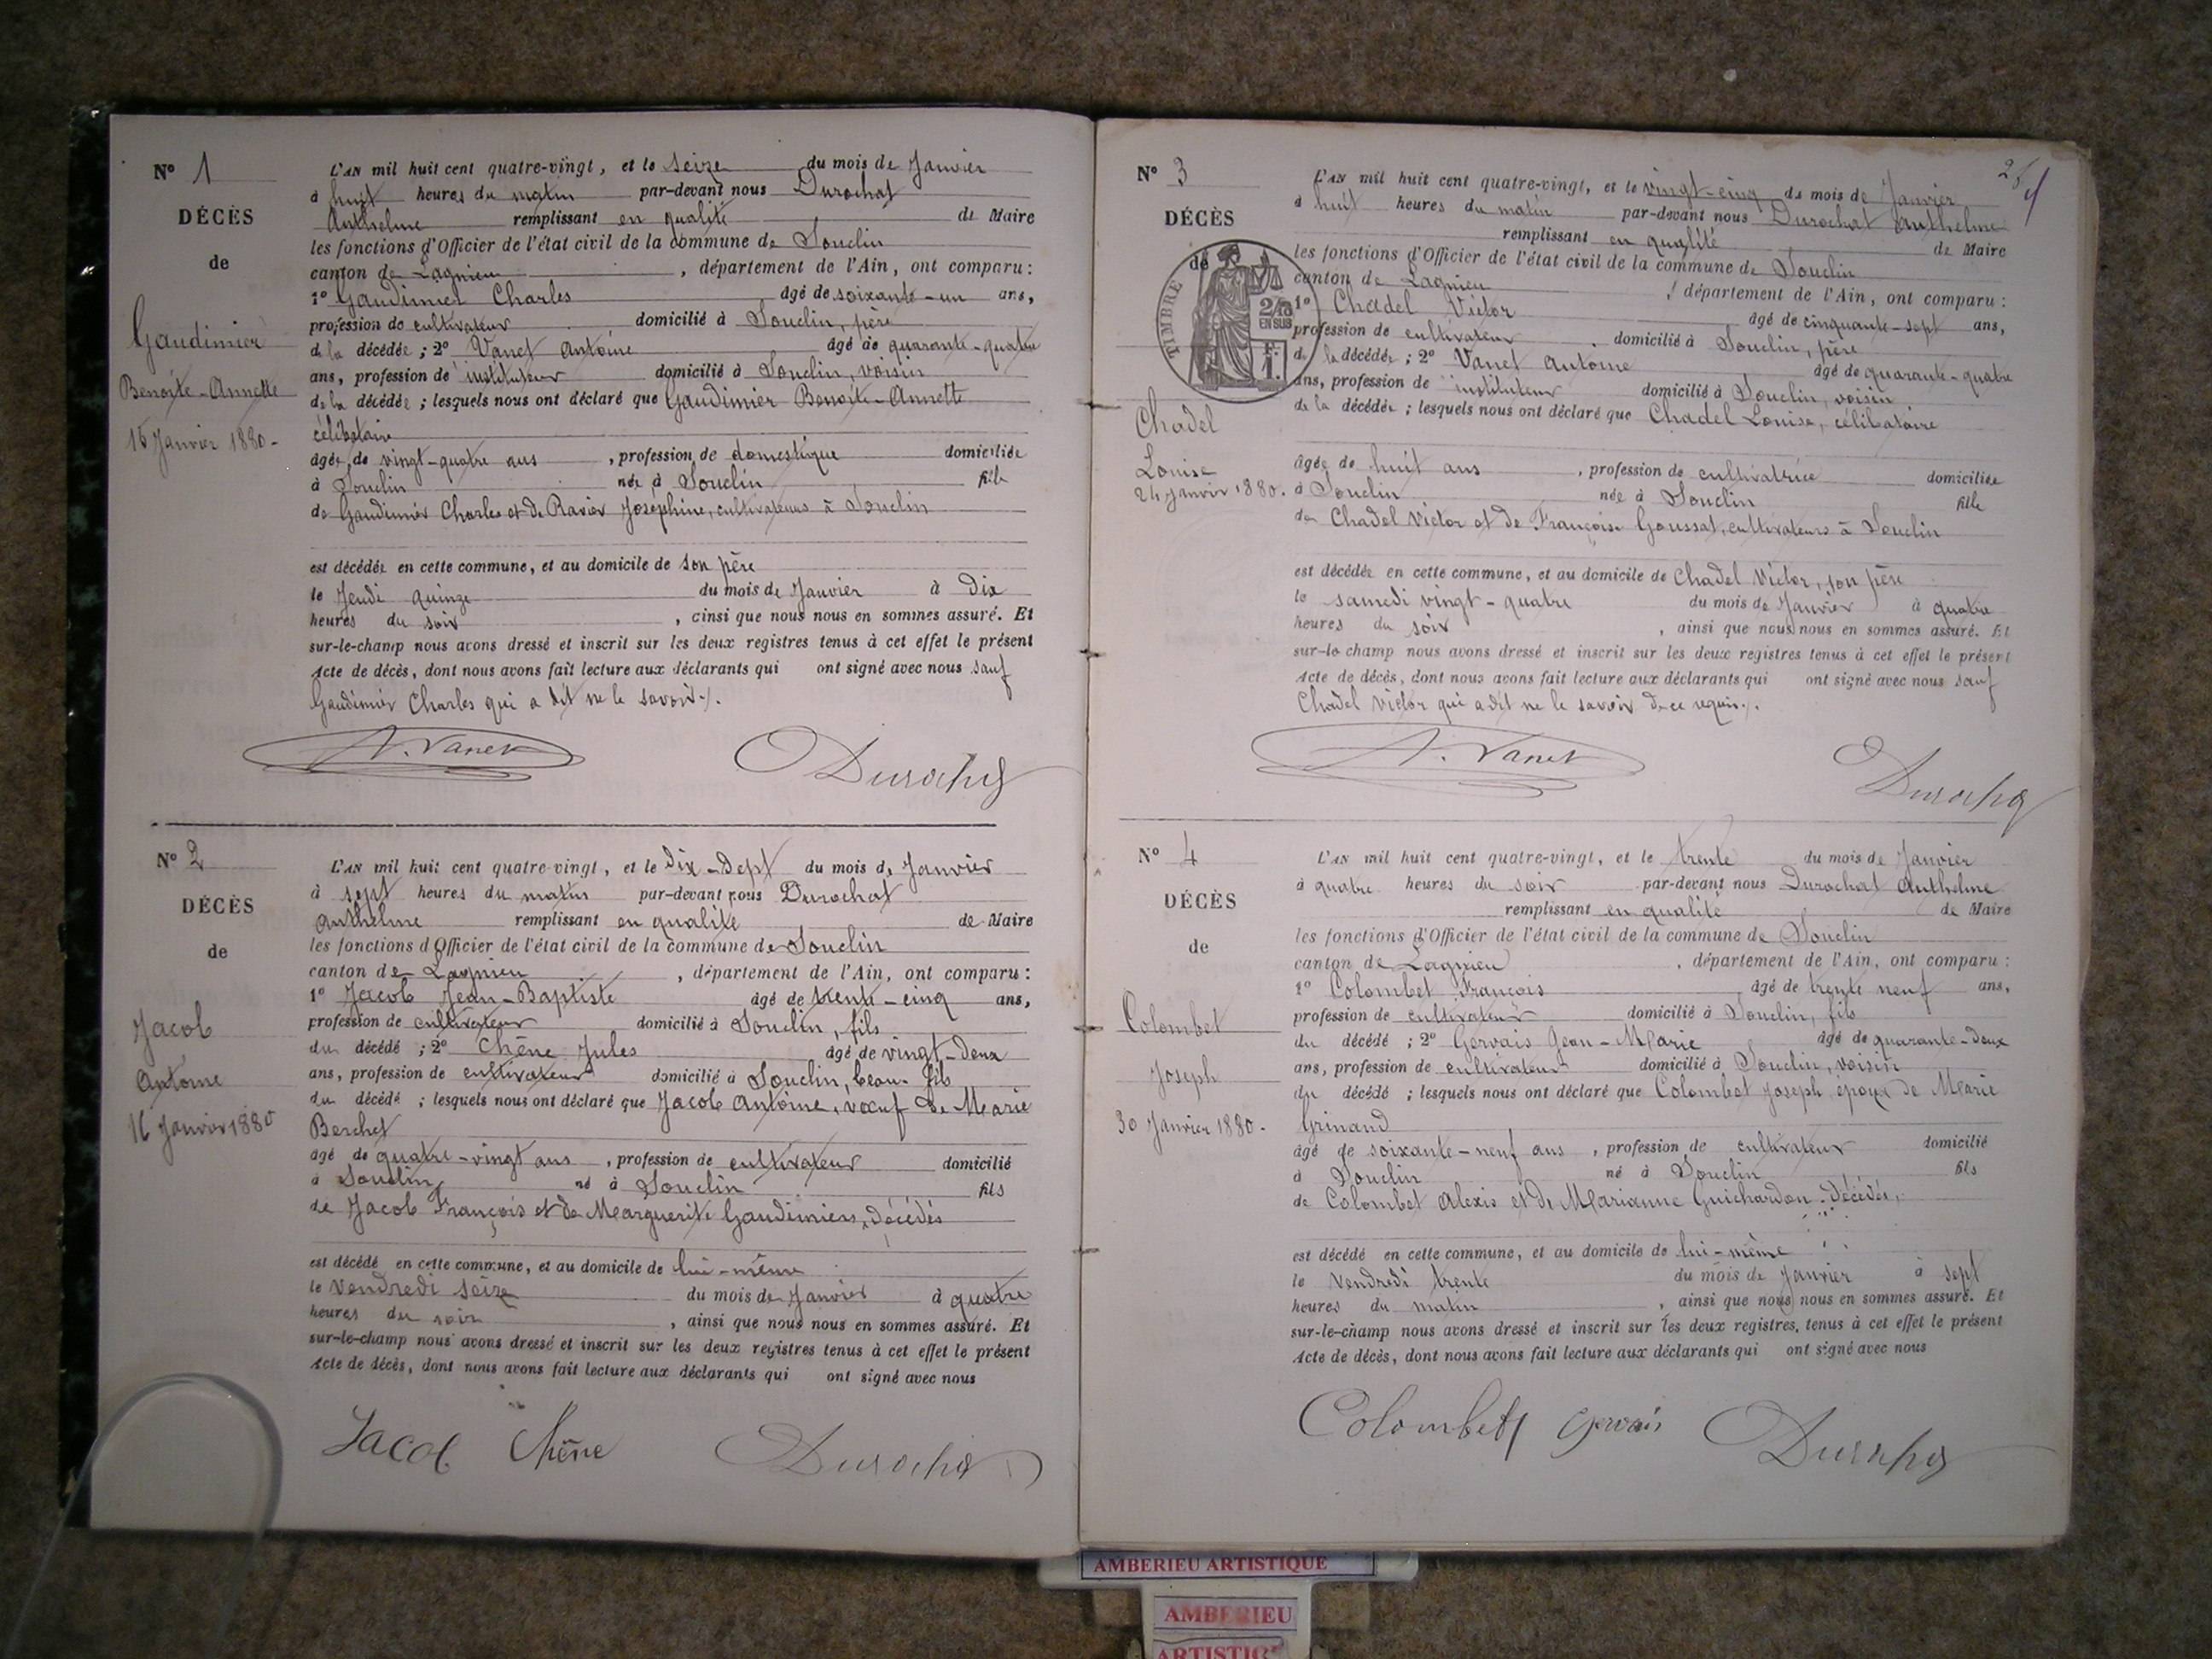 N° 1
DÉCÈS
de
Gaudimier
Benoite-Annette
15 Janvier 1880-
L'AN mil huit cent quatre-vingt, et le seize du mois de Janvier
à huit heures du matin par-devant nous Durochat
Anthelme remplissant en qualité de Maire
les fonctions d'Officier de l'état civil de la commune de Souclin
canton de Lagnieu, département de l'Ain, ont comparu :
1° Gaudimier Charles âgé de soixante-un ans,
profession de cultivateur domicilié à Souclin, père
de la décédée ; 2° Vanet Antoine âgé de quarante-quatre
ans, profession de instituteur domicilié à Souclin, voisin
de la décédée ; lesquels nous ont déclaré que Gaudimier Benoite-Annette
célibataire
âgée de vingt-quatre ans, profession de domestique domiciliée
à Souclin née à Souclin fille
de Gaudimier Charles et de Ravier Joséphine, cultivateurs à Souclin
est décédée en cette commune, et au domicile de son père
le Jeudi quinze du mois de Janvier à dix
heures du soir, ainsi que nous nous en sommes assuré. Et
sur-le-champ nous avons dressé et inscrit sur les deux registres tenus à cet effet le présent
Acte de décès, dont nous avons fait lecture aux déclarants qui ont signé avec nous sauf
Gaudimier Charles qui a dit ne le savoir./.
A. Vanet Durochat
N° 2
DÉCÈS
de
Jacob
Antoine
16 Janvier 1880
L'AN mil huit cent quatre-vingt, et le dix-sept du mois de Janvier
à sept heures du matin par-devant nous Durochat
Anthelme remplissant en qualité de Maire
les fonctions d'Officier de l'état civil de la commune de Souclin
canton de Lagnieu, département de l'Ain, ont comparu :
1° Jacob Jean-Baptiste âgé de trente-cinq ans,
profession de cultivateur domicilié à Souclin, fils
du décédé ; 2° Chêne Jules âgé de vingt-deux
ans, profession de cultivateur domicilié à Souclin, beau-fils
du décédé ; lesquels nous ont déclaré que Jacob Antoine, veuf de Marie
Berchet
âgé de quatre-vingt ans, profession de cultivateur domicilié
à Souclin, né à Souclin fils
de Jacob François et de Marguerite Gaudimier, décédés
est décédé en cette commune, et au domicile de lui-même
le Vendredi seize du mois de Janvier à quatre
heures du soir, ainsi que nous nous en sommes assuré. Et
sur-le-champ nous avons dressé et inscrit sur les deux registres tenus à cet effet le présent
Acte de décès, dont nous avons fait lecture aux déclarants qui ont signé avec nous
Jacob Chêne Durochat
N° 3
DÉCÈS
de
TIMBRE
2/10
EN SUS
F.
1.
Chadel
Louise
24 Janvier 1880.
L'AN mil huit cent quatre-vingt, et le vingt-cinq du mois de Janvier
à huit heures du matin par-devant nous Durochat Anthelme
remplissant en qualité de Maire
les fonctions d'Officier de l'état civil de la commune de Souclin
canton de Lagnieu, département de l'Ain, ont comparu :
1° Chadel Victor âgé de cinquante-sept ans,
profession de cultivateur, domicilié à Souclin, père
de la décédée ; 2° Vanet Antoine âgé de quarante-quatre
ans, profession de instituteur domicilié à Souclin, voisin
de la décédée ; lesquels nous ont déclaré que Chadel Louise, célibataire
âgée de huit ans, profession de cultivatrice domiciliée
à Souclin née à Souclin fille
de Chadel Victor et de Françoise Goussat, cultivateurs à Souclin
est décédée en cette commune, et au domicile de Chadel Victor, son père
le samedi vingt-quatre du mois de Janvier à quatre
heures du soir, ainsi que nous nous en sommes assuré. Et
sur-le-champ nous avons dressé et inscrit sur les deux registres tenus à cet effet le présent
Acte de décès, dont nous avons fait lecture aux déclarants qui ont signé avec nous sauf
Chadel Victor qui a dit ne le savoir de ce requis./.
A. Vanet Durochat
N° 4
DÉCÈS
de
Colombet
Joseph
30 Janvier 1880-
L'AN mil huit cent quatre-vingt, et le trente du mois de Janvier
à quatre heures du soir par-devant nous Durochat Anthelme
remplissant en qualité de Maire
les fonctions d'Officier de l'état civil de la commune de Souclin
canton de Lagnieu, département de l'Ain, ont comparu :
1° Colombet François âgé de trente neuf ans,
profession de cultivateur domicilié à Souclin, fils
du décédé ; 2° Gervais Jean-Marie âgé de quarante-deux
ans, profession de cultivateur domicilié à Souclin, voisin
du décédé ; lesquels nous ont déclaré que Colombet Joseph, époux de Marie
Grinand
âgé de soixante-neuf ans, profession de cultivateur domicilié
à Souclin né à Souclin fils
de Colombet Alexis et de Marianne Guichardon décédés,
est décédé en cette commune, et au domicile de lui-même
le Vendredi trente du mois de Janvier à sept
heures du matin, ainsi que nous nous en sommes assuré. Et
sur-le-champ nous avons dressé et inscrit sur les deux registres, tenus à cet effet le présent
Acte de décès, dont nous avons fait lecture aux déclarants qui ont signé avec nous
Colombet Gervais Durochat
AMBERIEU ARTISTIQUE
AMBERIEU